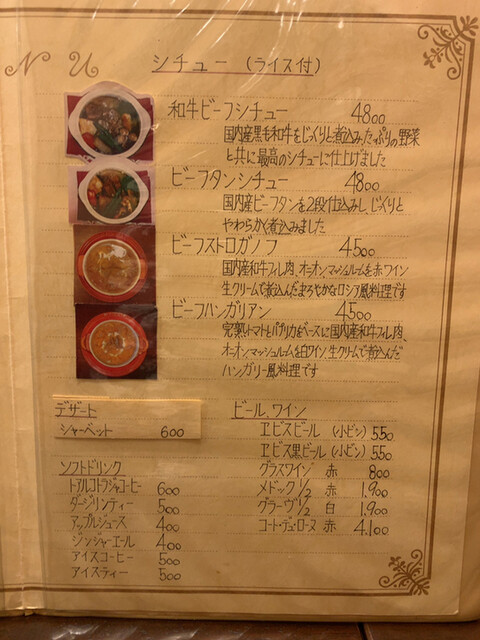 N U
シチュー (ライス付)
和牛ビーフシチュー 4800
国内産黒毛和牛をじっくりと煮込み、たっぷりの野菜
と共に最高のシチューに仕上げました
ビーフタンシチュー 4800
国内産ビーフタンを2段仕込みし、じっくりと
やわらかく煮込みました
ビーフストロガノフ 4500
国内産和牛フィレ肉、オニオン、マッシュルームを赤ワイン
生クリームで煮込んだまろやかなロシア風料理です
ビーフハンガリアン 4500
完熟トマトとパプリカをベースに国内産和牛フィレ肉、
オニオン、マッシュルームを白ワイン、生クリームで煮込んだ
ハンガリー風料理です
デザート
シャーベット 600
ソフトドリンク
トアルコトラジャコーヒー 600
ダージリンティー 500
アップルジュース 400
ジンジャーエール 400
アイスコーヒー 500
アイスティー 500
ビール、ワイン
ヱビスビール (小ビン) 550
ヱビス黒ビール (小ビン) 550
グラスワイン 赤 800
メドック 1/2 赤 1,900
グラーヴ 1/2 白 1,900
コート・デュ・ローヌ 赤 4,100